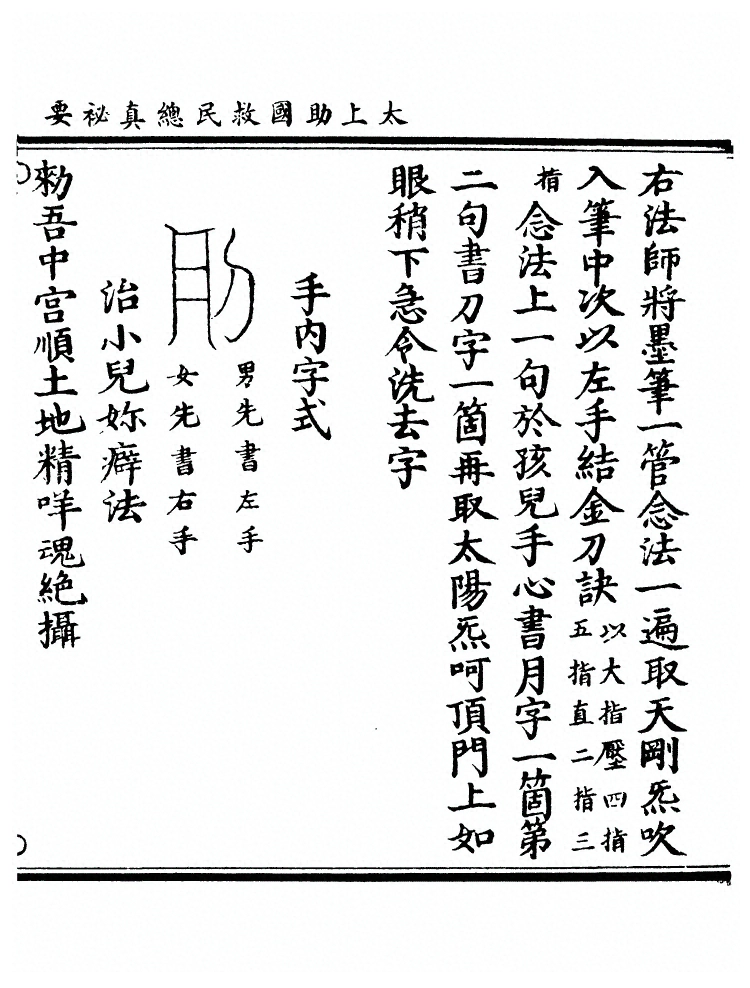 太上助國救民總真祕要
右法師將墨筆一管念法一遍取天剛炁吹
入筆中次以左手結金刀訣以大指壓四指五指直二指三
指念法上一句於孩兒手心書月字一箇第
二句書刀字一箇再取太陽炁呵頂門上如
眼稍下急令洗去字
手內字式
男先書左手
女先書右手
治小兒妳癖法
勑吾中宮順土地精咩魂絕攝